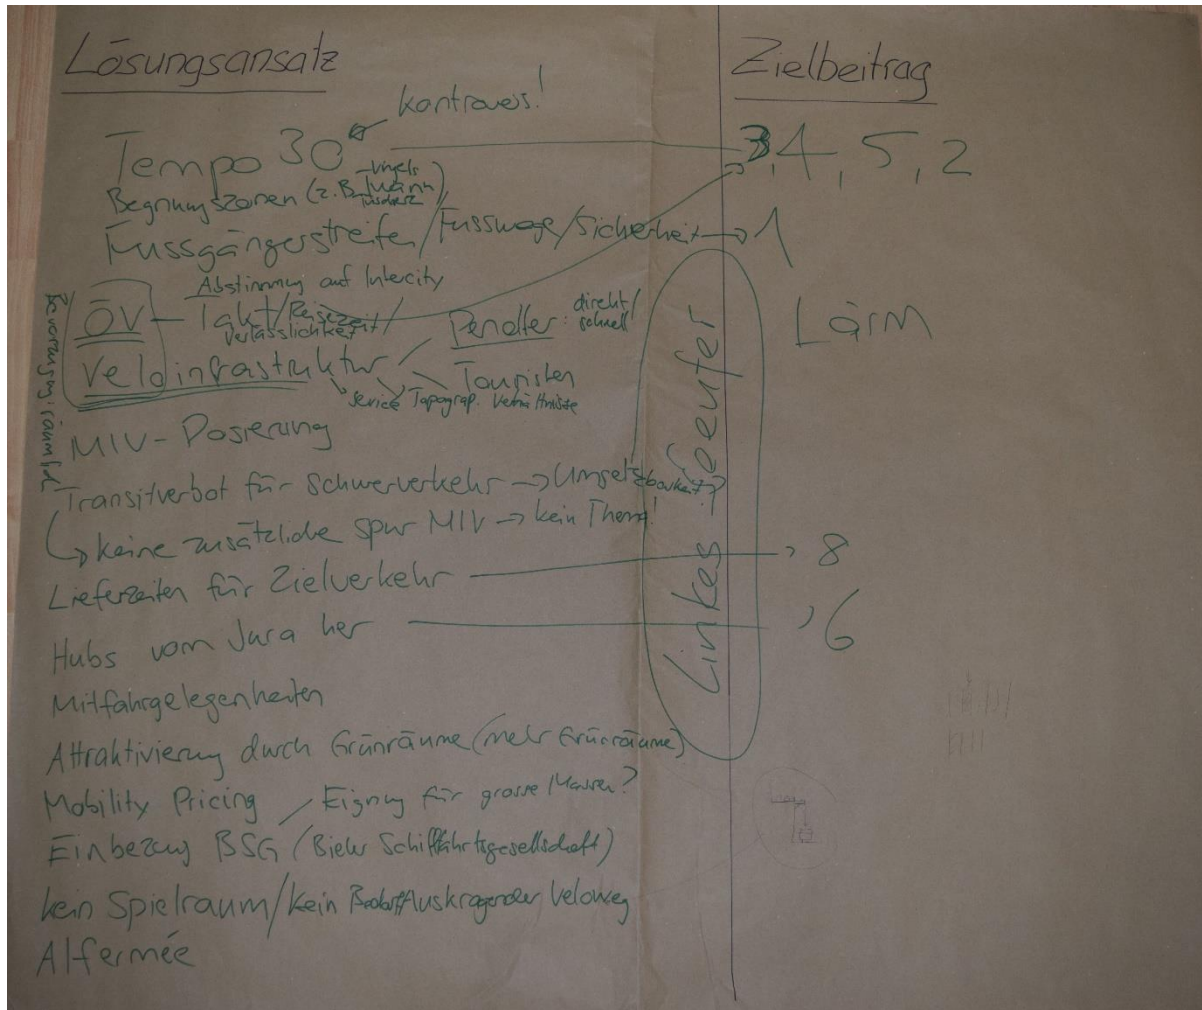 Lösungsansatz
Zielbeitrag
kontrovers!
Tempo 30
3, 4, 5, 2
Begnungszonen (z.B. Vingels
Twann
Tüscherz)
Fussgängerstreifen/Fusswege/Sicherheit → 1
Abstimmung auf Intercity
ÖV – Takt/Reisezeit/
Verlässlichkeit/
Pendler: direkt/
schnell
Lärm
Veloinfrastruktur
Touristen
Service Topograp. Verhältnisse
Bevorzugung: räumlich
MIV-Dosierung
Transitverbot für Schwerverkehr → Umsetzbarkeit?
↳ keine zusätzliche Spur MIV → kein Thema!
Lieferzeiten für Zielverkehr → 8
Hubs vom Jura her → 6
Linkes Seeufer
Mitfahrgelegenheiten
Attraktivierung durch Grünräume (mehr Grünräume)
Mobility Pricing
Eignung für grosse Massen?
Einbezug BSG (Bieler Schifffahrtsgesellschaft)
kein Spielraum/kein Bedarf Auskragender Veloweg
Alfermée